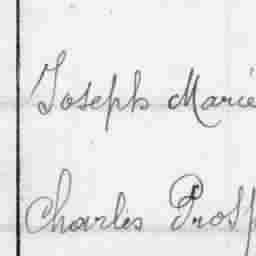 Joseph Marie
Charles Prosp